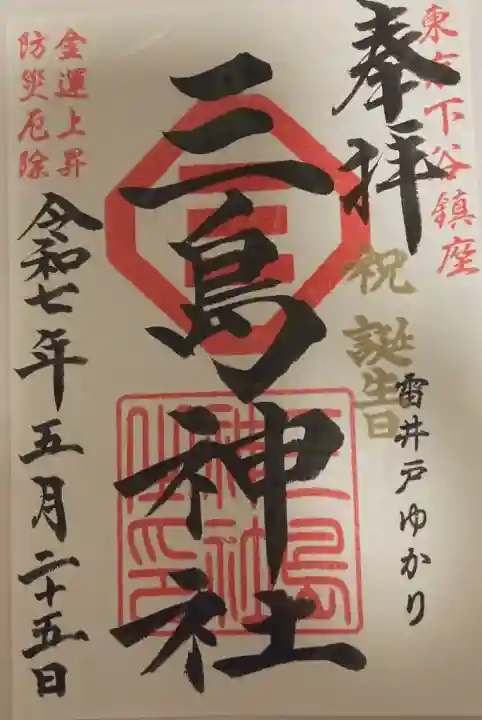 東京下谷鎮座
奉拝
祝 誕生日
雷井戸ゆかり
三
三島神社
三島
神社
之印
金運上昇
防災厄除
令和七年五月二十五日